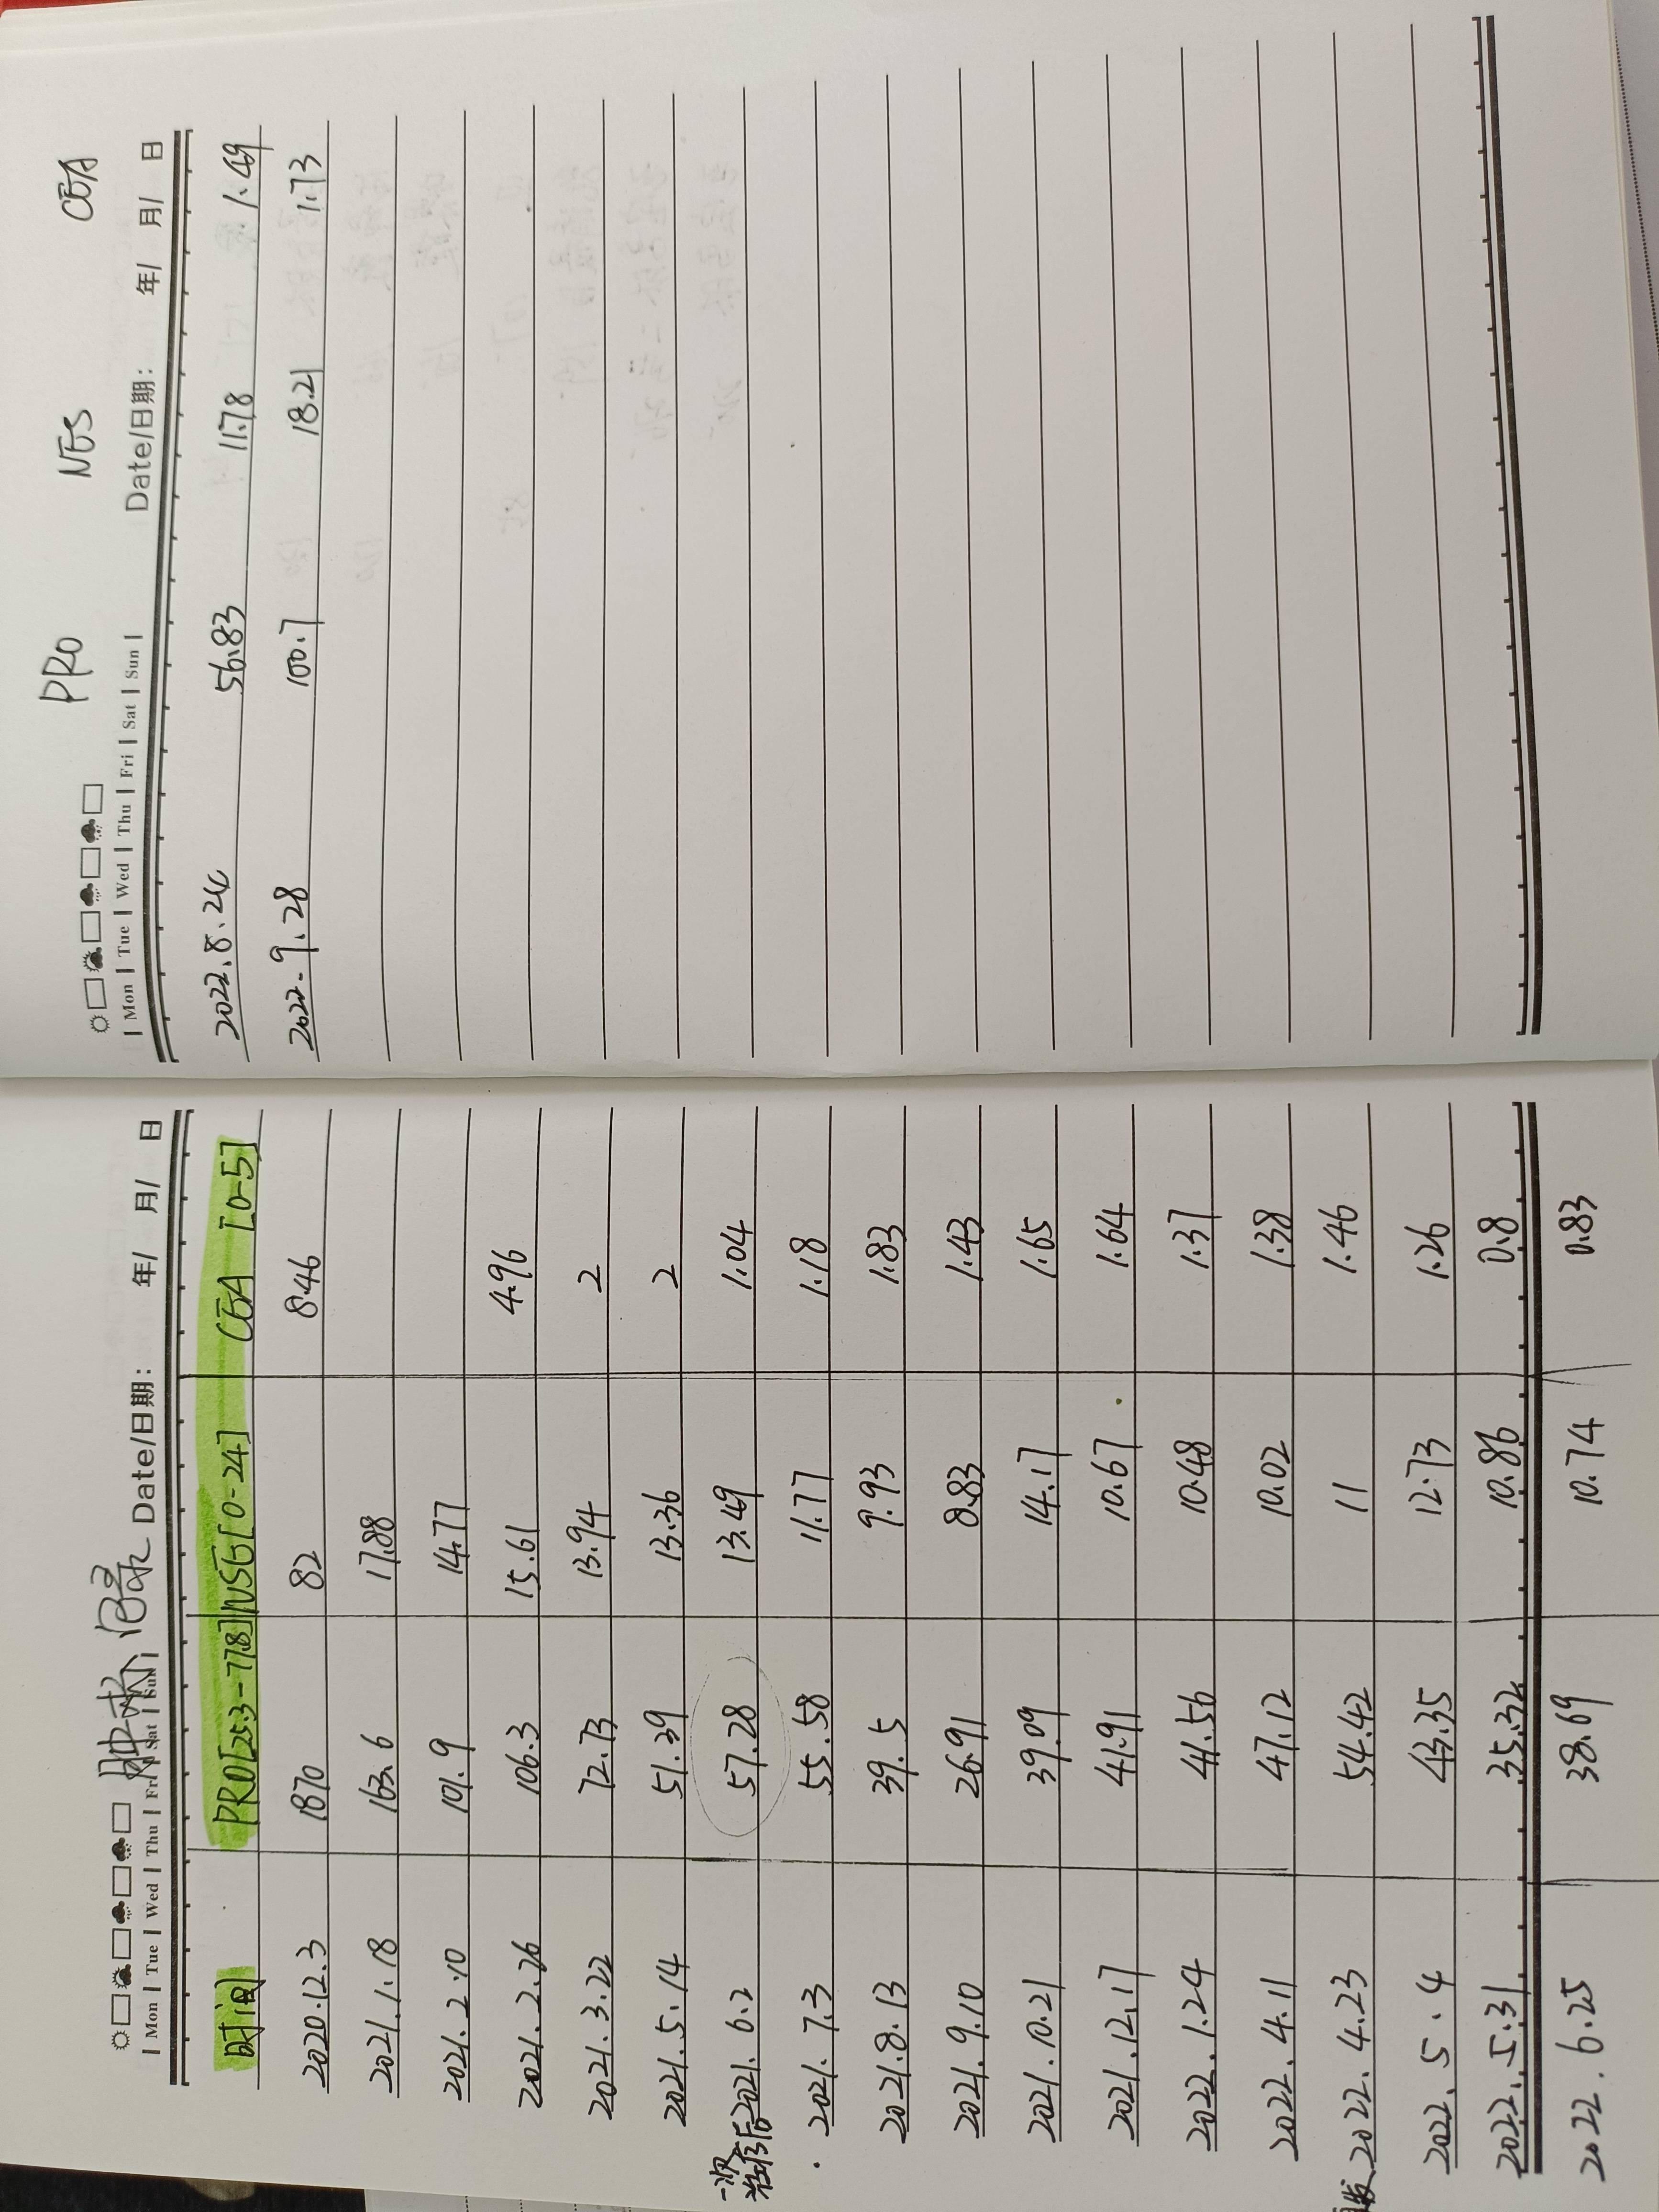 肿瘤 记录
Mon | Tue | Wed | Thu | Fri | Sat | Sun | Date/日期: 年/ 月/ 日
时间 PRO[25.3-77.8] NSE[0-24] CEA [0-5]
2020.12.3 1870 82 8.46
2021.1.18 163.6 17.88
2021.2.10 101.9 14.77
2021.2.26 106.3 15.61 4.96
2021.3.22 72.73 13.94 2
2021.5.14 51.39 13.36 2
一次
后2021.6.2 57.28 13.49 1.04
2021.7.3 55.58 11.77 1.18
2021.8.13 39.5 9.93 1.83
2021.9.10 26.91 8.83 1.43
2021.10.21 39.09 14.17 1.65
2021.12.17 41.91 10.67 1.64
2022.1.24 41.56 10.48 1.37
2022.4.11 47.12 10.02 1.38
2022.4.23 54.42 11 1.46
2022.5.4 43.35 12.73 1.26
2022.5.31 35.32 10.86 0.8
2022.6.25 38.69 10.74 0.83
PRO NES CEA
Mon | Tue | Wed | Thu | Fri | Sat | Sun | Date/日期: 年/ 月/ 日
2022.8.24 56.83 11.78 1.49
2022.9.28 100.7 18.21 1.73